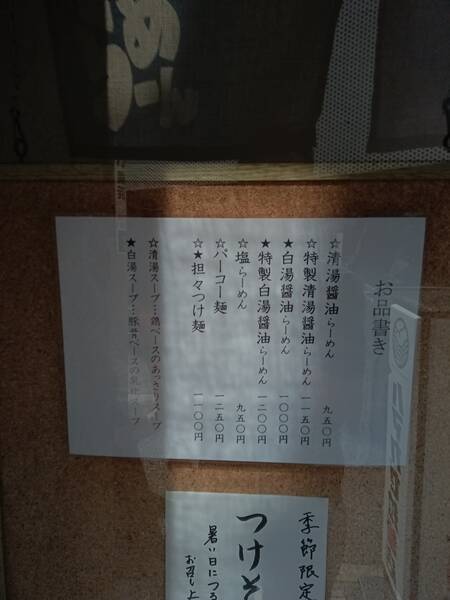 お品書き
☆清湯醤油らーめん 九五〇円
☆特製清湯醤油らーめん 一一五〇円
★白湯醤油らーめん 一〇〇〇円
★特製白湯醤油らーめん 一二〇〇円
☆塩らーめん 九五〇円
☆パーコー麺 一二五〇円
☆★担々つけ麺 一一〇〇円
☆清湯スープ…鶏ベースのあっさりスープ
★白湯スープ…豚骨ベースの乳化スープ
季節限定
つけそ
暑い日につる
お召し上